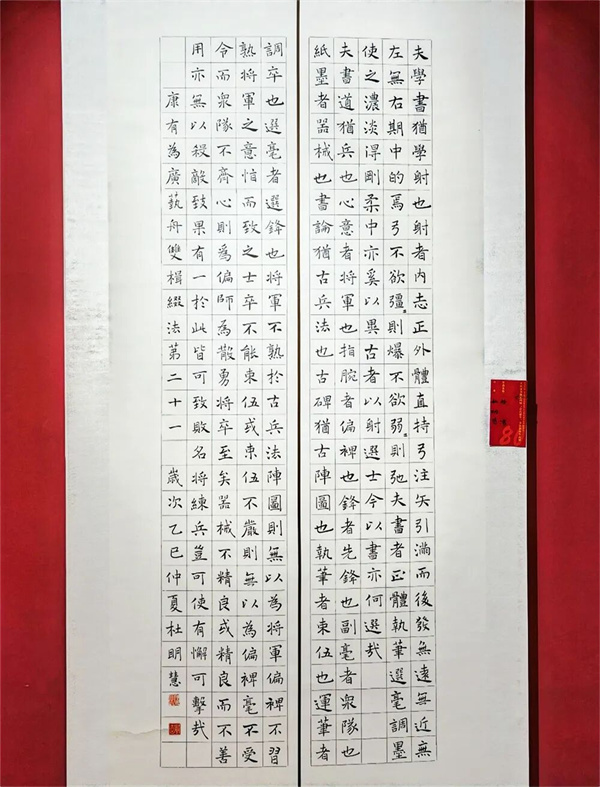 夫學書猶學射也射者內志正外體直持弓注矢引滿而後發無遠無近無
左無右期中的焉弓不欲彊〻則爆不欲弱〻則弛夫書者正體執筆選毫調墨
使之濃淡得剛柔中亦奚以異古者以射選士今以書亦何選哉
夫書道猶兵也心意者將軍也指腕者偏裨也鋒者先鋒也副毫者衆隊也
紙墨者器械也書論猶古兵法也古碑猶古陣圖也執筆者束伍也運筆者
調卒也選毫者選鋒也將軍不熟於古兵法陣圖則無以為將軍偏裨不習
熟將軍之意怕而致之士卒不能束伍或束伍不嚴則無以為偏裨毫不受
令而衆隊不齊心則為偏師為散勇將卒至矣器械不精良或精良而不善
用亦無以殺敵致果有一於此皆可致敗名將練兵豈可使有懈可擊哉
康有為廣藝舟雙楫綴法第二十一 歲次乙巳仲夏杜明慧